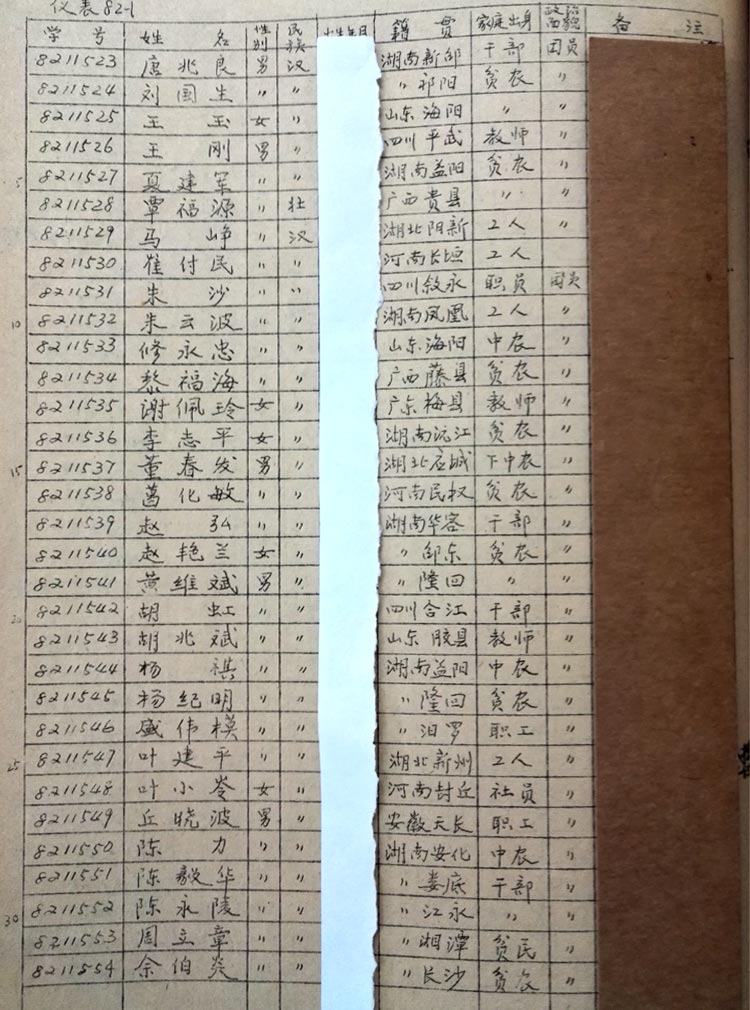 仪表82-1
学号 姓名 性别 民族 籍贯 家庭出身 政治面貌 备注
8211523 唐兆良 男 汉 湖南新邵 干部 团员
8211524 刘国生 〃 〃 〃祁阳 贫农 〃
8211525 王玉 女 〃 山东海阳 〃 〃
8211526 王刚 男 〃 四川平武 教师 〃
5 8211527 夏建军 〃 〃 湖南益阳 贫农 〃
8211528 覃福源 〃 壮 广西贵县 〃 〃
8211529 马峥 〃 汉 湖北阳新 工人 〃
8211530 崔付民 〃 〃 河南长垣 工人
8211531 朱沙 〃 〃 四川叙永 职员 团员
10 8211532 朱云波 〃 〃 湖南凤凰 工人 〃
8211533 修永忠 〃 〃 山东海阳 中农 〃
8211534 黎福海 〃 〃 广西藤县 贫农 〃
8211535 谢佩玲 女 〃 广东梅县 教师 〃
8211536 李志平 女 〃 湖南沅江 贫农 〃
15 8211537 董春发 男 〃 湖北应城 下中农 〃
8211538 葛化敏 〃 〃 河南民权 贫农 〃
8211539 赵弘 〃 〃 湖南华容 干部 〃
8211540 赵艳兰 女 〃 〃邵东 贫农 〃
8211541 黄维斌 男 〃 〃隆回 〃 〃
20 8211542 胡虹 〃 〃 四川合江 干部 〃
8211543 胡兆斌 〃 〃 山东胶县 教师 〃
8211544 杨祺 〃 〃 湖南益阳 中农 〃
8211545 杨纪明 〃 〃 〃隆回 贫农 〃
8211546 盛伟模 〃 〃 〃汨罗 职工 〃
25 8211547 叶建平 〃 〃 湖北新州 工人 〃
8211548 叶小岺 女 〃 河南封丘 社员 〃
8211549 丘晓波 男 〃 安徽天长 职工 〃
8211550 陈力 〃 〃 湖南安化 中农 〃
8211551 陈毅华 〃 〃 〃娄底 干部 〃
30 8211552 陈永陵 〃 〃 〃江永 〃 〃
8211553 周立章 〃 〃 〃湘潭 贫民 〃
8211554 余伯炎 〃 〃 〃长沙 贫农 〃